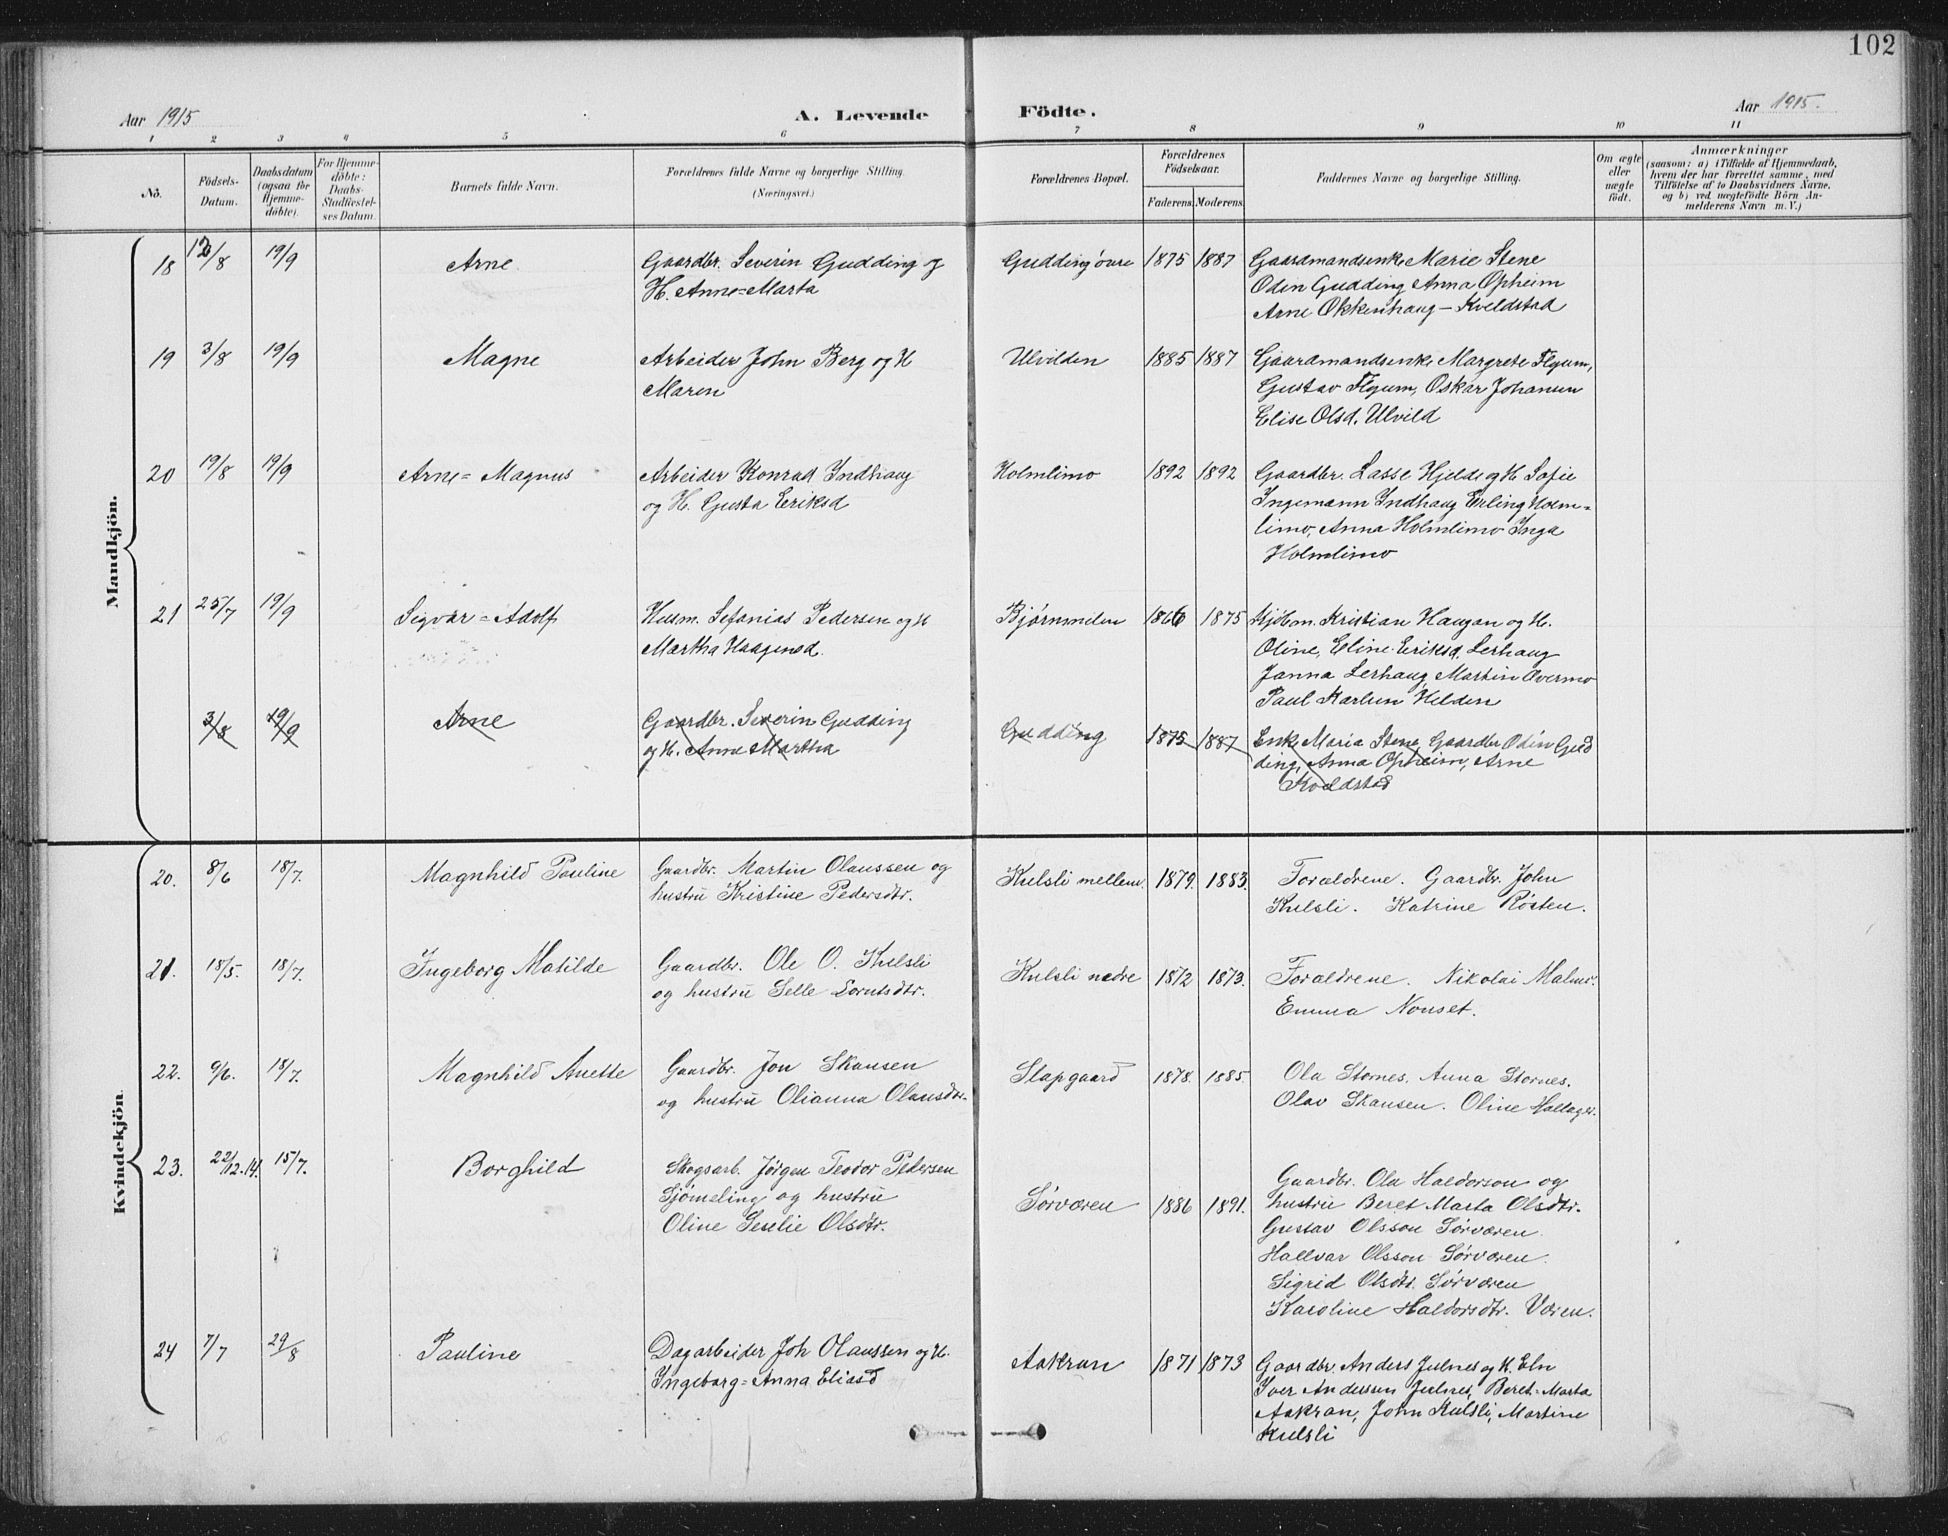 102
Aar 1915
A. Levende Födte.
Aar 1915.
1 2 3 4 5 6 7 8 9 10 11
No.
Födsels-
Datum.
Daabsdatum
(ogsaa for
Hjemme-
döbte).
For Hjemme-
döbte:
Daabs-
Stadfæstel-
ses Datum.
Barnets fulde Navn.
Forældrenes fulde Navne og borgerlige Stilling.
(Næringsvei.)
Forældrenes Bopæl.
Forældrenes
Födselsaar.
Faderens. Moderens.
Faddernes Navne og borgerlige Stilling.
Om ægte
eller
uægte
födt.
Anmærkninger
(saasom: a) i Tilfælde af Hjemmedaab,
hvem der har forrettet samme, med
Tilföielse af to Daabsvidners Navne,
og b) ved uægtefödte Börn An-
melderens Navn m. V.)
Mandkjön.
18 /8 19/9 Arne. Gaardbr. Severin Gudding og
H. Anne=Marta
Gudding övre 1875 1887 Gaardmandsenke Marie Stene
Odin Gudding Anna Opheim
Arne Okkenhaug – Kveldstad
19 3/8 19/9 Magne Arbeider John Berg og H
Maren
Ulvilden 1885 1887 Gaardmandsenke Margrete Flyum,
Gustav Flyum, Oskar Johansen
Elise Olsd. Ulvild
20 19/8 19/9 Arne=Magnus Arbeider Konrad Indhaug
og H. Gusta Eriksd
Holmlimo 1892 1892 Gaardbr. Lasse Hjelde og H Sofie
Ingemann Indhaug Erling Holm=
limo, Anna Holmlimo Inga
Holmlimo
21 25/7 19/9 Sigvar=Adolf Husm. Sefanias Pedersen og H
Martha Haagensd.
1866 1875 Kjöbm. Kristian Haugan og H.
Oline, Eline Eriksd. Lerhaug
Janna Lerhaug, Martin Overmo
Paul Karlsen Helden
3/8 19/9 Arne Gaardbr. Severin Gudding
og H. Anne Martha
Gudding 1875 1887 Enke Maria Stene, Gaardbr Odin Gud
ding, Anna Opheim, Arne
Kveldstad
Kvindekjön.
20. 8/6 18/7. Magnhild Pauline Gaardbr. Martin Olaussen og
hustru Kristine Pedersdtr.
Kulsli mellem. 1879. 1883. Forældrene. Gaardbr. John
Kulsli. Katrine Røsten.
21. 18/5. 18/7. Ingeborg Matilde Gaardbr. Ole O. Kulsli
og hustru Selle Lorntsdtr.
Kulsli nedre 1872 1873. Forældrene. Nikolai Malmo.
Emma Nonset.
22. 9/6. 18/7. Magnhild Anette Gaardbr. Jon Skansen
og hustru Olianna Olausdtr.
Slapgaard 1878. 1885. Ola Stornes. Anna Stornes.
Olav Skansen. Oline Hallager.
23. 22/12.14. 15/7. Borghild Skogsarb. Jørgen Teodor Pedersen
Sjømeling og hustru
Oline Selie Olsdtr.
Sørværen 1886 1891. Gaardbr. Ola Haldorson og
hustru Beret Marta Olsdtr.
Gustav Olsson Sørværen.
Hallvar Olsson Sørværen.
Sigrid Olsdtr. Sørværen
Karoline Haldorsdtr. Væren.
24 7/7 29/8 Pauline Dagarbeider Joh Olaussen og H.
Ingeborg=Anna Eliasd
Aakran 1871 1873 Gaardbr. Anders Julnes og H. Eln
Iver Anderssen Julnes, Beret-Marta
Aakran, John Kulsli, Martine
Kulsli